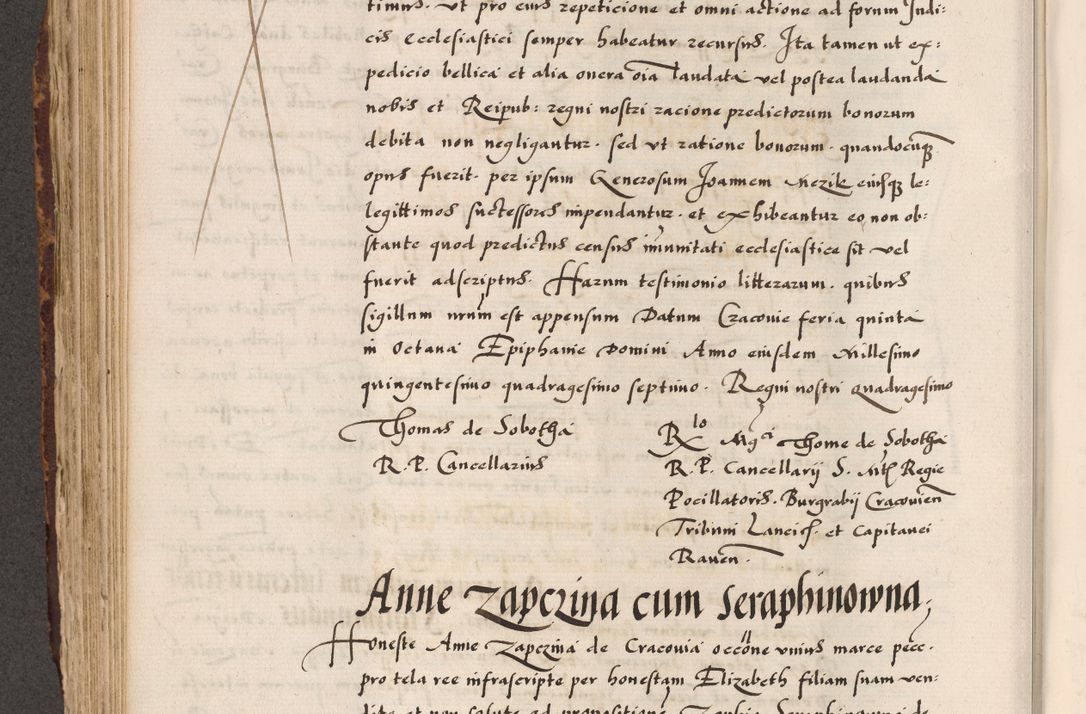 timus. ut pro eius repeticione et omni actione ad forum Judi:
cis ecclesiastici semper habeatur recursus. Ita tamen ut ex:
pedicio bellica et alia onera oia laudata vel postea laudanda
nobis et Reipub: regni nostri racione predictorum bonorum
debita non negligantur. sed ut ratione bonorum. quandocunq
opus fuerit. per ipsum Generosum Joannem Mezik eiusq le:
legittimos successores impendantur. et exhibeantur eo non ob:
stante quod predictus census imunitati ecclesiastice sit vel
fuerit adscriptus. Harum testimonio litterarum. quibus
sigillum nrum est appensum Datum Cracovie feria quinta
in octava Epiphanie Domini Anno eiusdem Millesimo
quingentesimo quadragesimo septimo. Regni nostri quadragesimo
Thomas de Sobotha
R. P. Cancellarius
Rlo Mgci Thome de Sobotha
R. P. Cancellarij S. Mtis Regie
Pocillatoris. Burgrabij Cracovien
Tribuni Lancic. et Capitanei
Raven.
Anne Zapczina cum Seraphinowna,
Honeste Anne Zapczina de Cracovia occone unius marce pecc.
pro tela ree infrascripte per honestam Elizabeth filiam suam ven:
dite et non solute ad propositionem Zophie Seraphinowni de